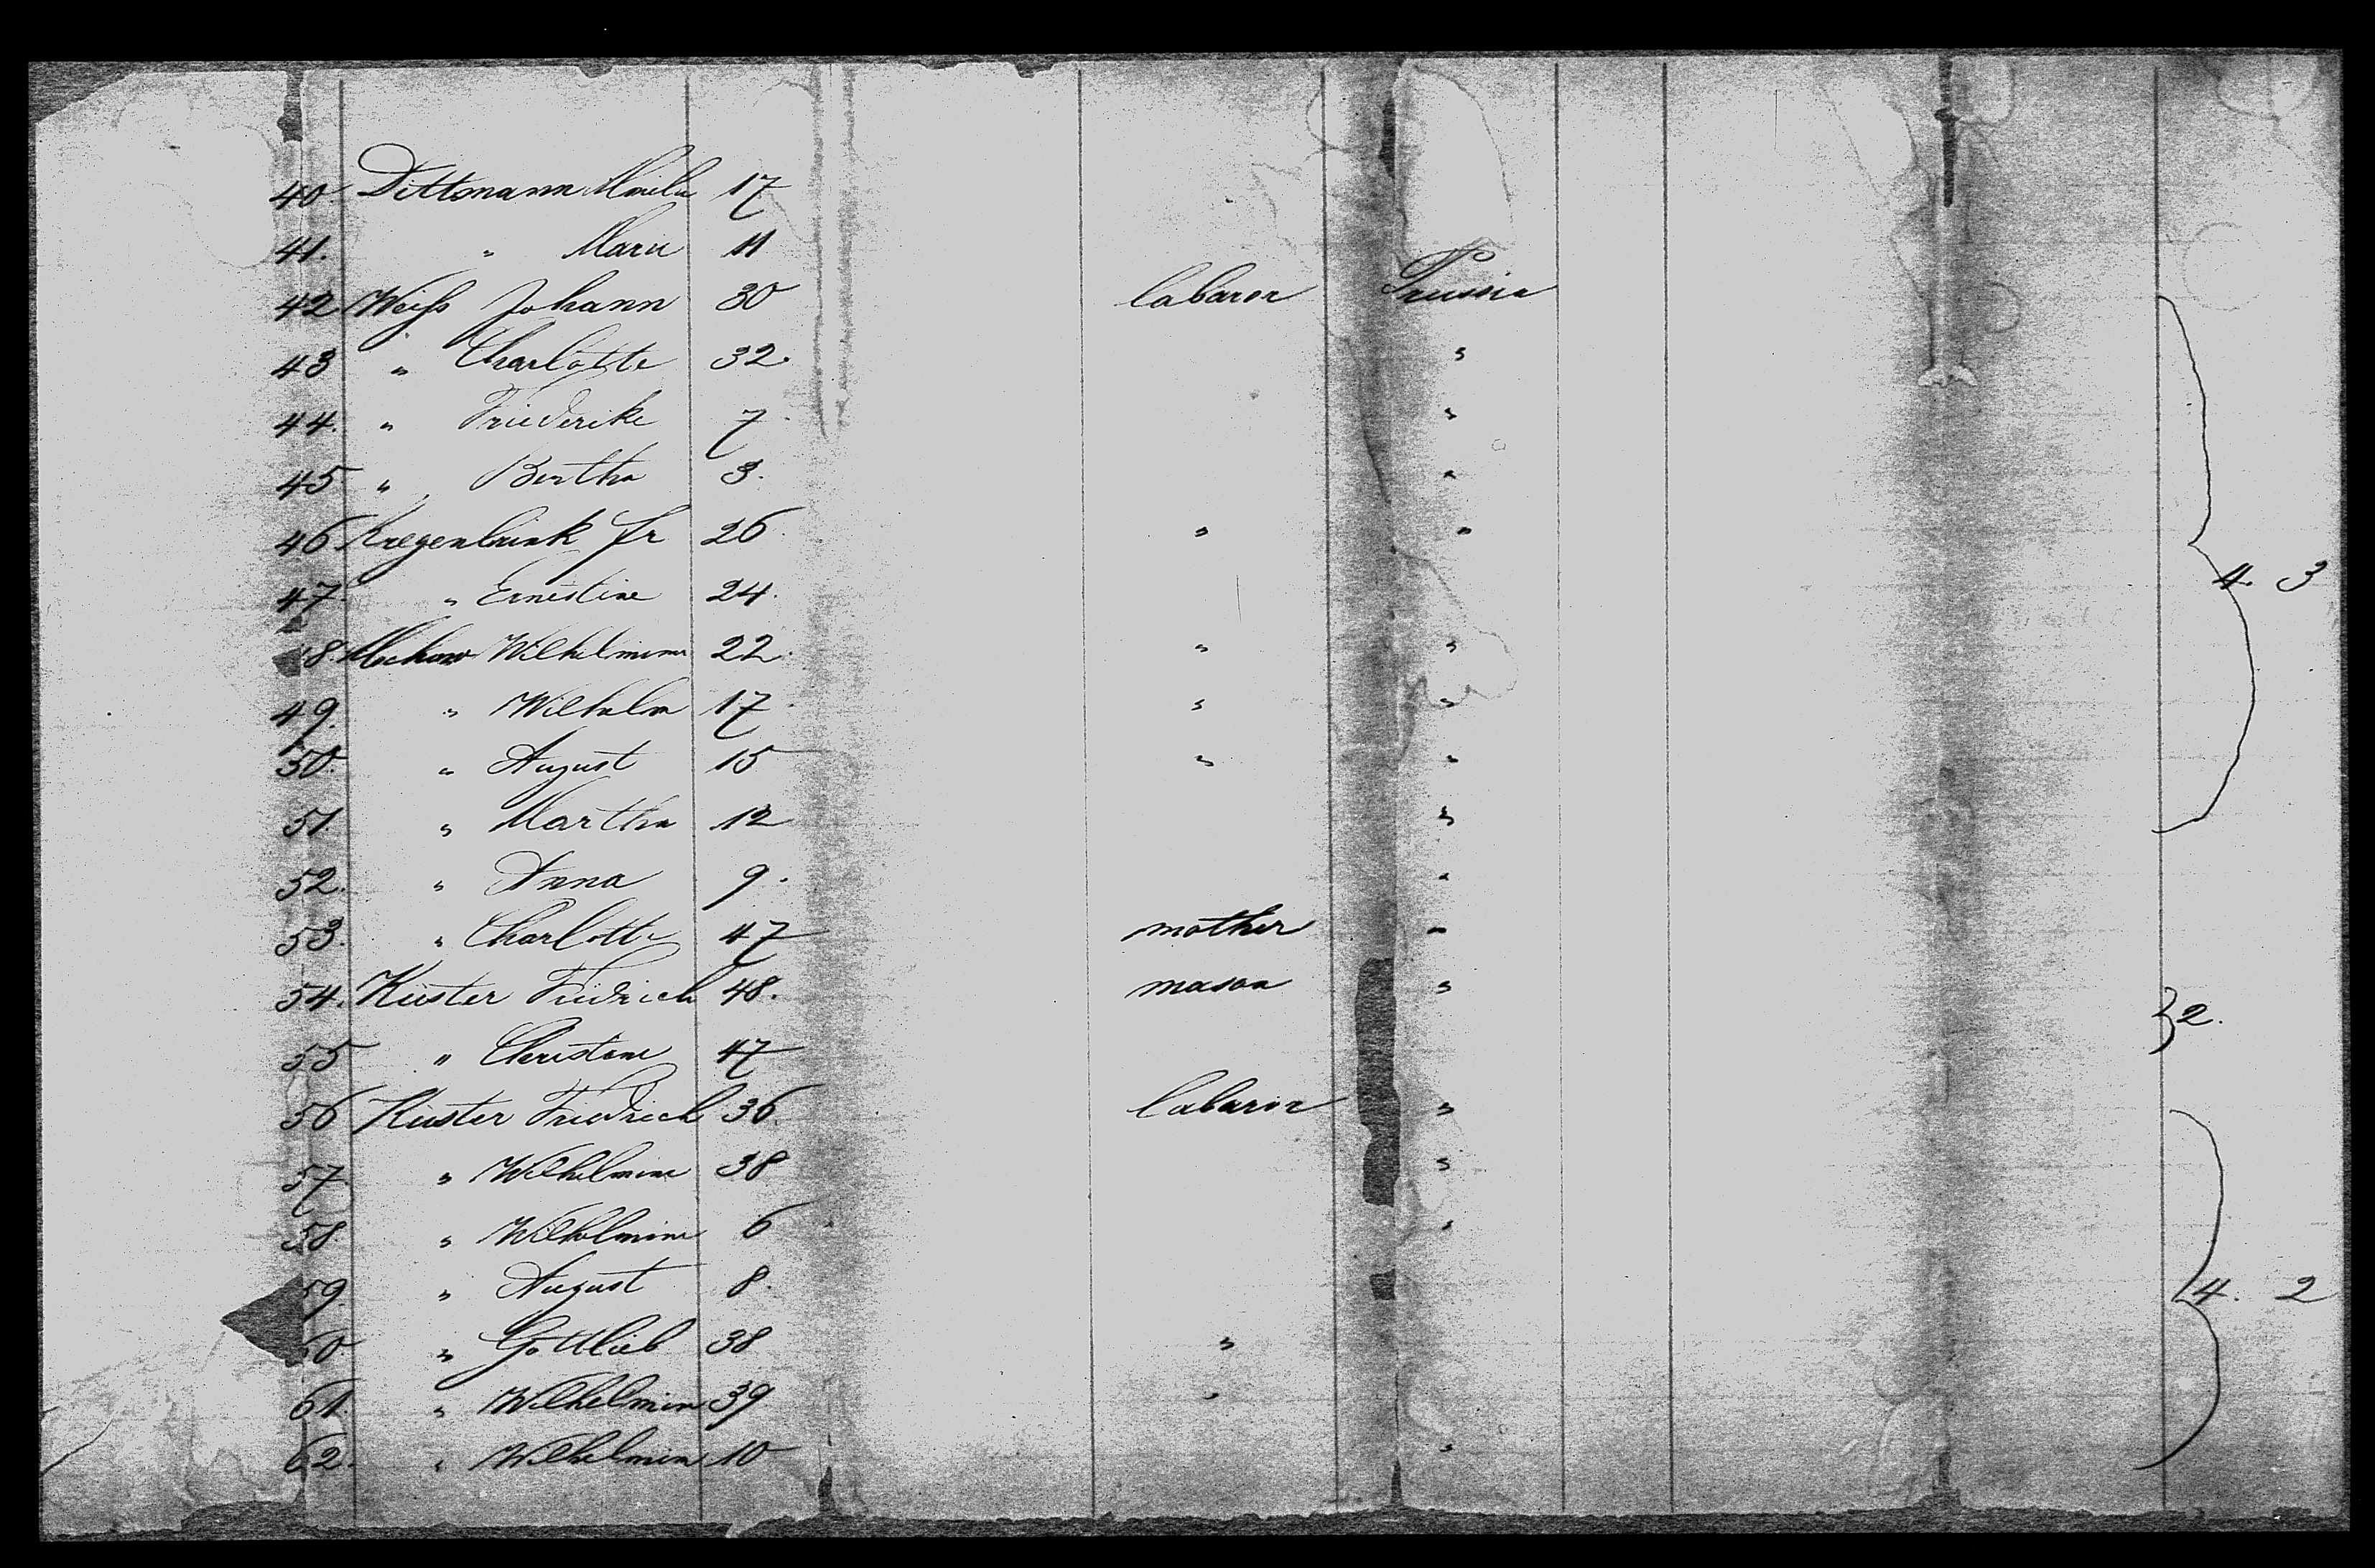 40. Dittmann 17
41. " Marie 11
42 Weiß Johann 30 labaror Prussia
43 " Charlotte 32. "
44. " Friederike 7 "
45 " Bertha 3. "
46 Kregenbrink Fr 26 " "
47. " Ernestine 24.
8. Wilhelmine 22. " "
49. " Wilhelm 17 " "
50. " August 15 " "
51. " Martha 12 "
52. " Anna 9. "
53. " Charlotte 47 mother "
4. 3
54. Küster Friedrich 48. mason "
2.
55 " Christine 47
56 Küster Friedrich 36. labaror "
57 " Wilhelmine 38 "
58. " Wilhelmine 6 "
59. " August 8.
4. 2
60 " Gottlieb 38 "
61 " Wilhelmine 39 "
62. " Wilhelmine 10 "